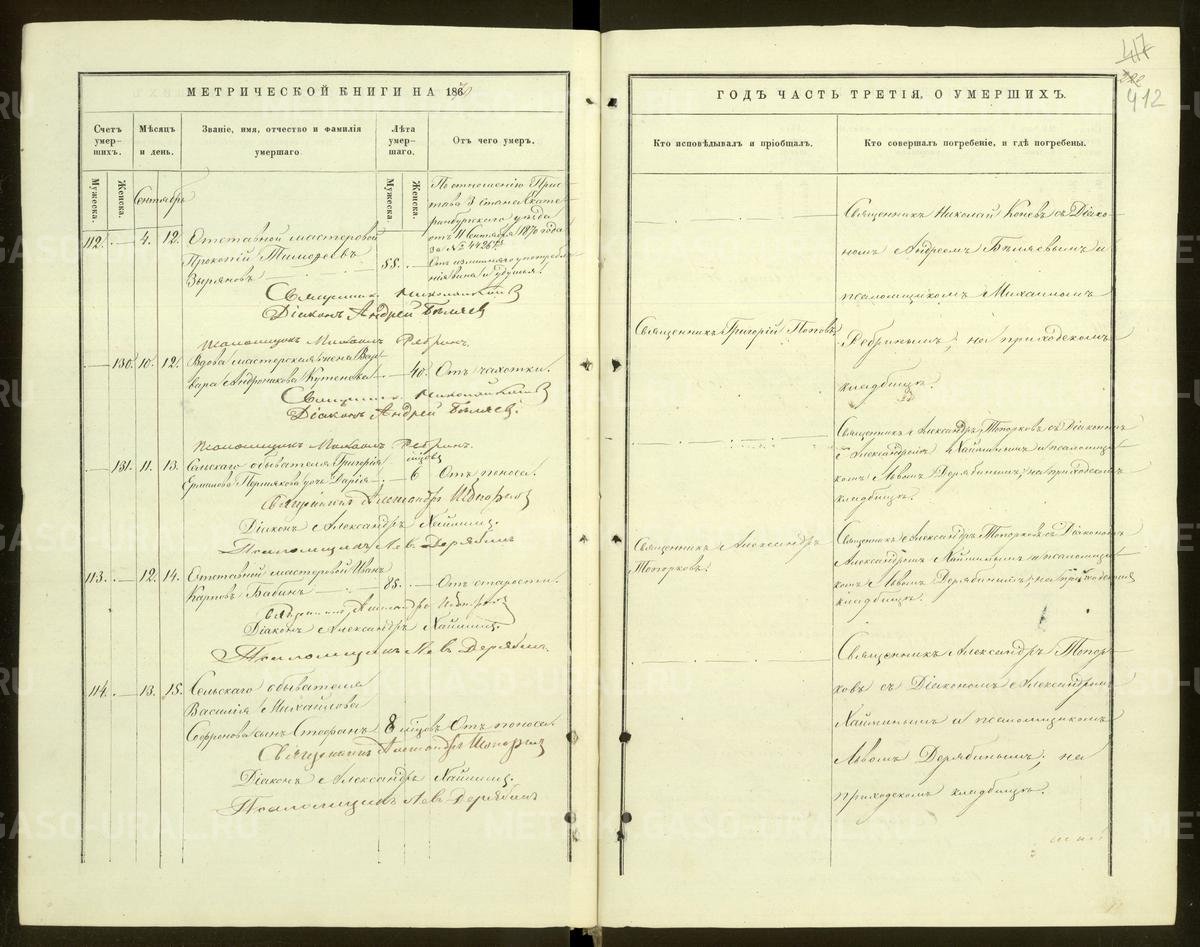 417
382
412
МЕТРИЧЕСКОЙ КНИГИ НА 1870
Счетъ умер-шихъ.
Мѣсяцъ и день.
Званіе, имя, отчество и фамилія умершаго
Лѣта умер-шаго.
Отъ чего умеръ.
Мужеска.
Женска.
Мужеска.
Женска.
Сентябрь
По отношенію Прис-
тава 3 стана Екате-
ринбургскаго уѣзда
отъ 11 Сентября 1870 года
за № 4426
112. — 4. 12. Отставной мастеровой
Прокопій Тимофеевъ
Зыряновъ
58. — Отъ излишняго употребле-
нія вина и удушья.
Священникъ Николай
Діаконъ Андрей Бѣляевъ
Псаломщикъ Михаилъ Ребринъ.
— 130. 10. 12. Вдова мастерская жена Вар-
вара Андроникова — 40. Отъ чахотки.
Священникъ Николай
Діаконъ Андрей Бѣляевъ.
Псаломщикъ Михаилъ Ребринъ.
— 131. 11. 13. Сельскаго обывателя Григорія
Ермилова дочь Дарія — 6 мѣсцовъ Отъ поноса.
Священникъ Александръ Топорковъ
Діаконъ Александръ Наймушинъ.
Псаломщикъ Левъ Дерябинъ
113. — 12. 14. Отставной мастеровой Иванъ
Карповъ Бабинъ — 85. — Отъ старости.
Священникъ Александръ Топорковъ
Діаконъ Александръ
Псаломщикъ Левъ Дерябинъ.
114. — 13. 15. Сельскаго обывателя
Василія Михайлова
Софронова сынъ Стефанъ 8 мѣсцовъ Отъ поноса.
Священникъ Александръ Топорковъ
Діаконъ Александръ
Псаломщикъ Левъ Дерябинъ
ГОДЪ ЧАСТЬ ТРЕТІЯ, О УМЕРШИХЪ.
Кто исповѣдывалъ и пріобщалъ.
Кто совершалъ погребеніе, и гдѣ погребены.
Священникъ Николай Коневъ съ Діако-
номъ Андреемъ Бѣляевымъ и
псаломщикомъ Михаиломъ
Священникъ Григорій Поповъ.
Ребринымъ; на приходскомъ
кладбищѣ.
Священникъ Александръ Топорковъ съ Діакономъ
Александромъ и псаломщи-
комъ Львомъ Дерябинымъ; на приходскомъ
кладбищѣ.
Священникъ Александръ
Топорковъ.
Священникъ Александръ Топорковъ съ Діакономъ
Александромъ и псаломщи-
комъ Львомъ Дерябинымъ; на приходскомъ
кладбищѣ.
Священникъ Александръ Топор-
ковъ съ Діакономъ Александромъ
и псаломщикомъ
Львомъ Дерябинымъ; на
приходскомъ кладбищѣ.
METRIKI.GASO-URAL.RU